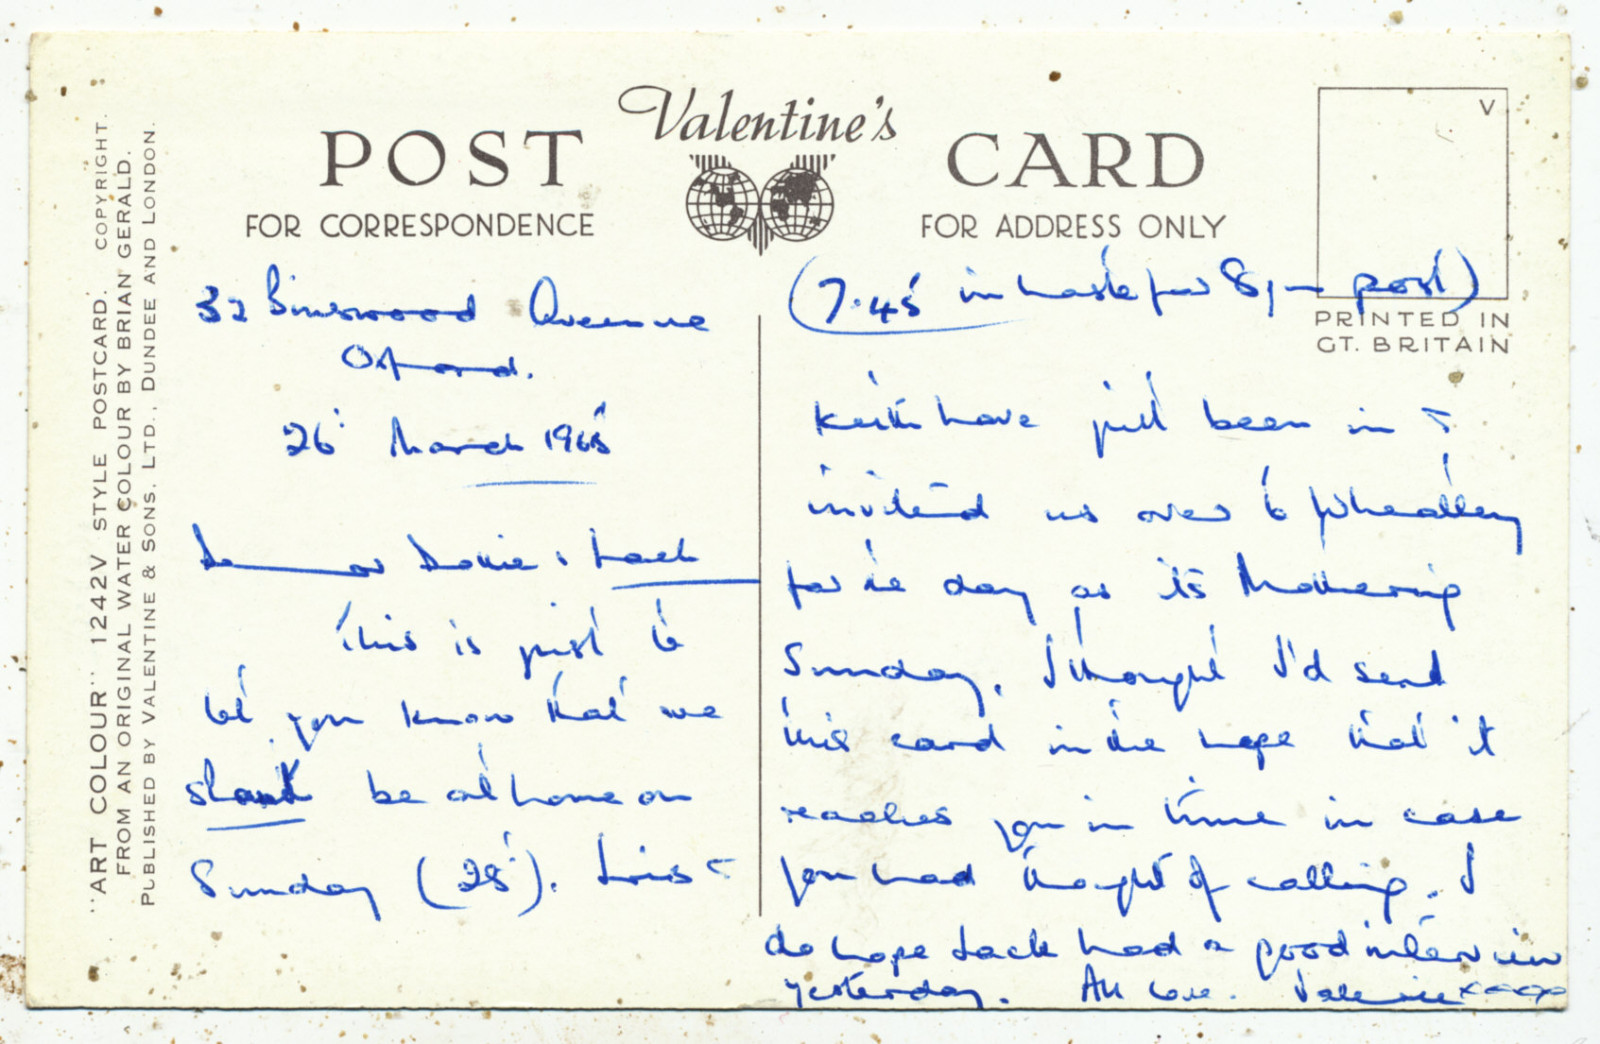 Valentine's
POST CARD
FOR CORRESPONDENCE
FOR ADDRESS ONLY
V
PRINTED IN
GT. BRITAIN
"ART COLOUR" 1242V STYLE POSTCARD. COPYRIGHT.
FROM AN ORIGINAL WATER COLOUR BY BRIAN GERALD.
PUBLISHED BY VALENTINE & SONS, LTD., DUNDEE AND LONDON.
32 Binswood Avenue
Oxford.
26 March 1965
Dear Dollie & Jack
This is just to
let you know that we
shan't be at home on
Sunday (28). Lois &
(7.45 in haste for 8pm post)
Keith have just been in &
invited us over to Wheatley
for the day as it's Mothering
Sunday. I thought I'd send
this card in the hope that it
reaches you in time in case
you had thought of calling. I
do hope Jack had a good interview
yesterday. All love. Valerie xxxxx